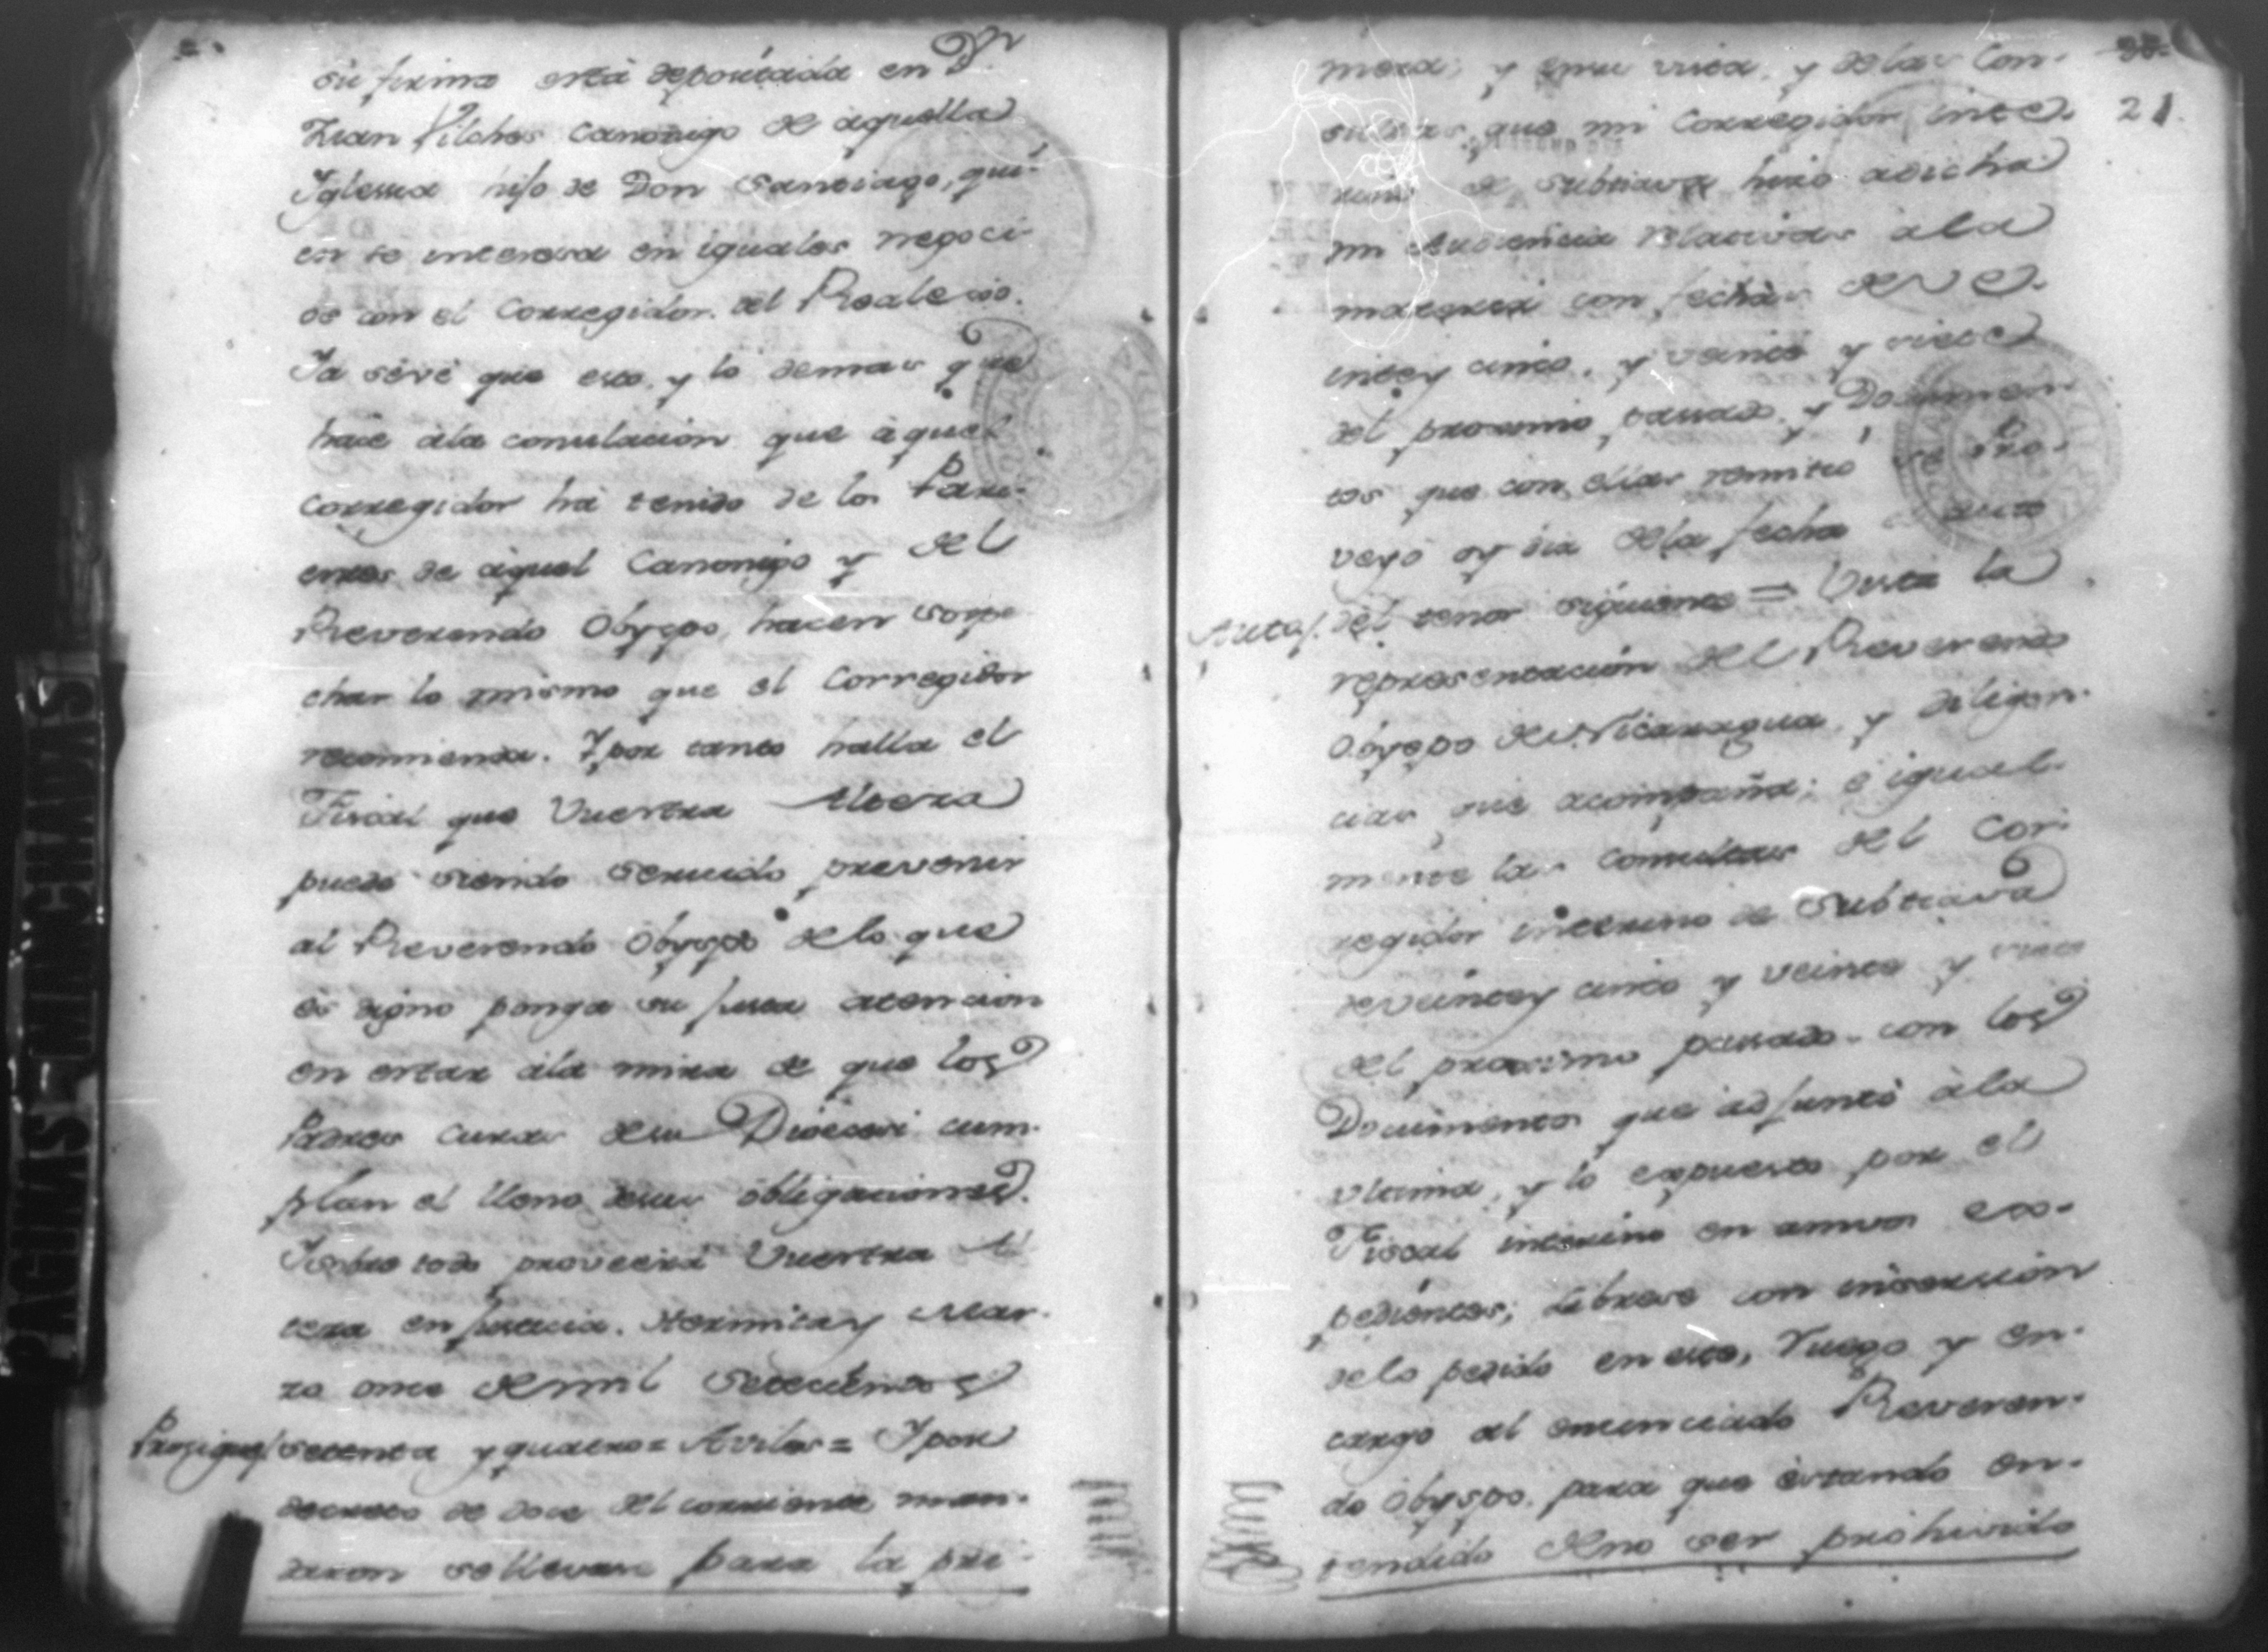 su firma está depositada en Dn
Juan Vilches Canonigo de aquella
Iglesia hijo de Don Santiago, qui-
en se interesa en iguales negoci-
os con el Corregidor del Realejo.
Ya sevé que esto, y lo demas que
hace ála conculacion que aquel
Corregidor há tenido de los Pari-
entes de aquel Canonigo y del
Reverendo Obyspo, hacen sospe
char lo mismo que el Corregidor
recomienda. Ypor tanto halla el
Fiscal que Vuestra Alteza
puede siendo servido prevenir
al Reverendo Obyspo delo que
es digno ponga su justa atencion
en estar ála mira de que los
Padres Curas desu Diócesi cum-
plan el lleno desus obligaciones.
Ysobre todo proveerá Vuestra Al
teza en justicia. Hermita y Mar-
zo once demil setecientos
Prosigue/ setenta y quatro = Aviles = Ypor
decreto de doce del corriente man-
daron sellevase para la pri-
mera, y ensu vista, y delas Con-
sultas, que mi Corregidor inte- 21.
rino de Subtiava hizo adicha
mi Audiencia relativas ala
materia con fechas de ve-
intey cinco, y veinte y siete
del proximo pasado, y Documen
tos que con ellas remitió se pro-
veyó oy dia dela fecha el auto
Auto/. del tenor siguiente = Vista la
representación del Reverendo
Obyspo de Nicaragua, y diligen-
cias que acompaña; é igual-
mente las Consultas del Cor-
regidor interino de Subtiava
deveintey cinco y veinte y siete
del proximo pasado, con los
Documentos que adjuntó ála
ultima, y lo expuesto por el
Fiscal interino en ambos ex-
pedientes; Librese con inserción
delo pedido en esto, Ruego y en-
cargo al enunciado Reveren-
do Obyspo, para que éstando en-
tendido deno ser prohivido